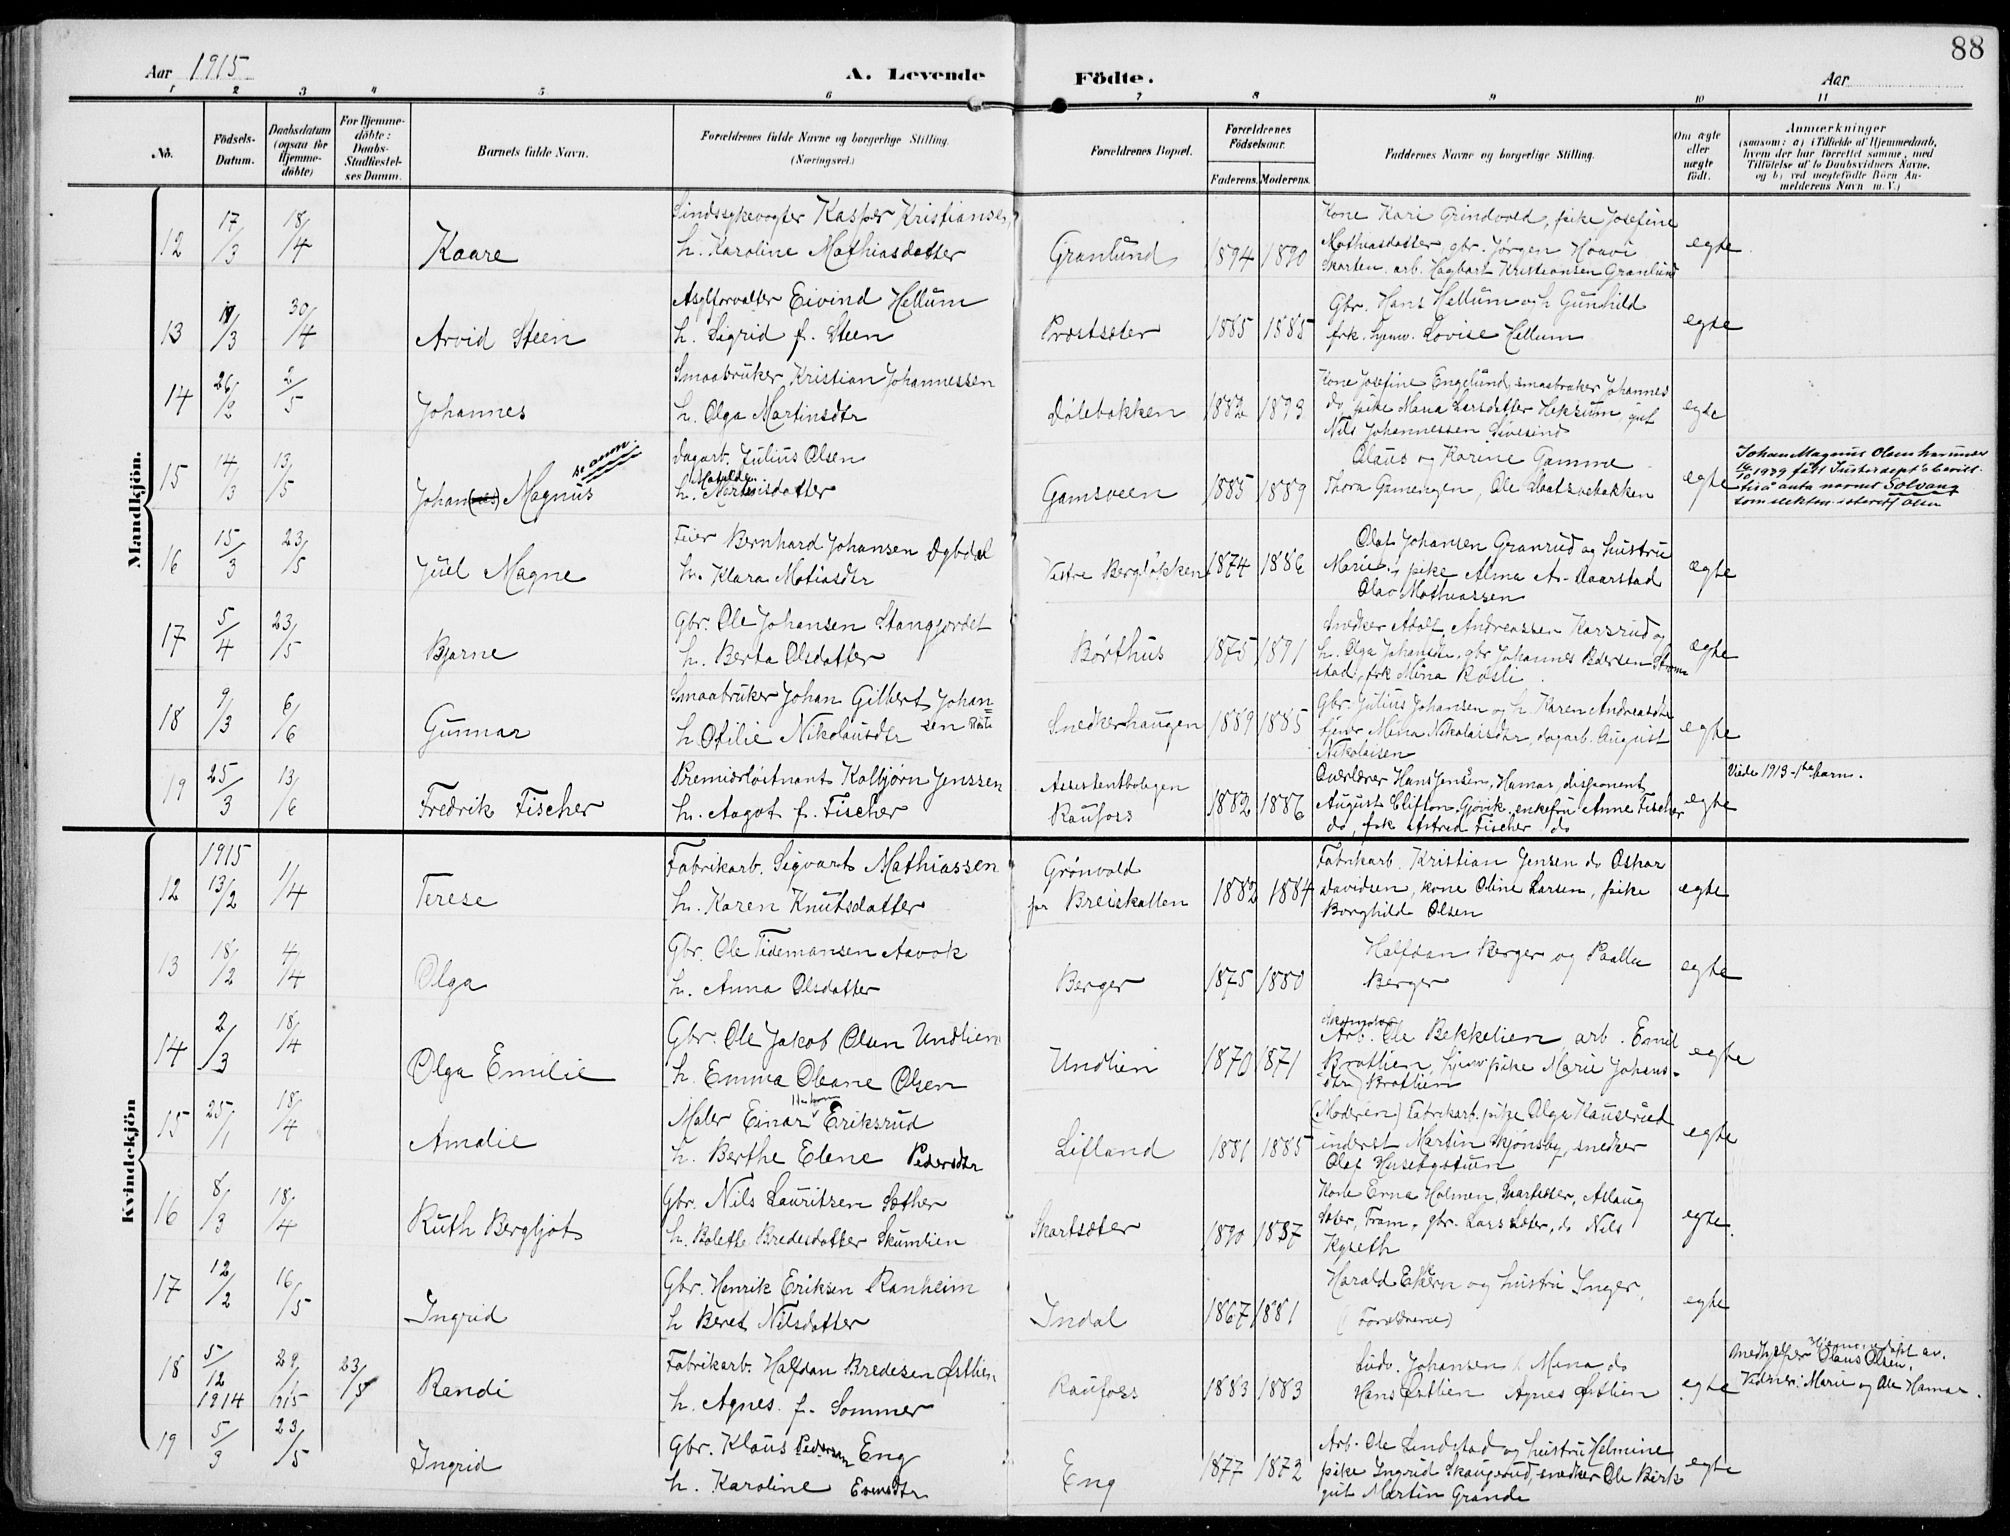 88
Aar 1915
A. Levende
Födte.
Aar
1 2 3 4 5 6 7 8 9 10 11
No.
Födsels-Datum.
Daabsdatum (ogsaa for Hjemmedöbte)
For Hjemmedöbte: Daabs-Stadfæstelses Datum.
Barnets fulde Navn.
Forældrenes fulde Navne og borgerlige Stilling. (Næringsvei.)
Forældrenes Bopæl.
Forældrenes Födselsaar.
Faderens. Moderens.
Faddernes Navne og borgerlig Stilling.
Om ægte eller uægte födt.
Anmærkninger
(saasom: a) i Tilfælde af Hjemmedaab,
hvem der har forrettet samme, med
Tilföielse af to Daabsvidners Navne,
og b) ved uægtefödte Börn An-
melderens Navn m. V.)
Mandkjön.
12 17/3 18/4 Kaare
Sindssykevogter Kasper Kristiansen
h. Karoline Mathiasdatter
Granlund 1894 1890
Kone Kari Grindvold, pike Josefine
Mathiasdatter, gbr. Jørgen Høavi
Skarten, arb. Hagbart Kristiansen Granlund
egte
13 17/3 30/4 Arvid Steen
Asylforvalter Eivind Hellum
h. Sigrid f. Steen
Prostseter 1885 1885
Gbr. Hans Hellum och Gunhild
frk. hjemv. Lovise Hellum
egte
14 26/2 2/5 Johannes
Smaabruker Kristian Johannessen
h. Olga Martinsdtr
Dølebakken 1882 1893
Kone Josefine Engelund, smaabruker Johannes
do, pike Mena Larsdatter Heksum, gut
Nils Johannessen Sivesind
egte
15 14/3 13/5 Johan(nes) Magnus se anm.
Dagarb. Julius Olsen
h. Matilde Martinisdatter
Gamsveen 1885 1889
Olaus og Karine Gamme
Thora Gamengen, Ole
egte
Johan Magnus Olsen har under
16/10 1939 fått Justisdept's bevill.
til å anta navnet Solvang
som slektsn. istedetf. Olsen
16 15/3 23/5 Juel Magne
Feier Bernhard Johansen Dybdal
h. Klara Matiasdtr
Vestre Bergløkken 1874 1886
Olaf Johansen Granrud og hustru
Marie, pike Alma A. Daarstad
Olav Mathiassen
ægte
17 5/4 23/5 Bjarne
Gbr. Ole Johansen Stangjordet
h. Berta Olsdatter
Børthus 1875 1891
Snedker Adolf Andreassen Karsrud og
h. Olga Johansen, gbr Johannes Pedersen Strøm
stad, frk Mina Røsli.
ægte
18 9/3 6/6 Gunnar
Smaabruker Johan Gilbert Johan=
h. Otilie Nikolausdtr sen
Snedkerhaugen 1889 1885
Gbr. Julius Johansen og h. Karen Andreasdtr
tjmr Mina Nikolaisdtr, dagarb. August
Nikolaisen
egte
19 25/3 13/6 Fredrik Fischer
Premierløitnant Kolbjørn Jenssen
h. Aagot f. Fischer
Assistentboligen
Raufoss 1882 1886
Overlærer Hans Jensen, Hamar, disponent
August Clifton, Gjøvik, enkefru Anne Fischer
do, frk Astrid Fischer do
egte
Viede 1913 - 1ste barn.
Kvindekjön
12 1915 13/2 1/4 Terese
Fabrikarb. Sigvart Mathiassen
h. Karen Knutsdatter
Grønvold
før Breiskallen 1882 1884
Fabrikarb. Kristian Jensen do Oskar
Davidsen, kone Oline Larsen, pike
Borghild Olsen
egte
13 18/2 4/4 Olga
Gbr. Ole Tidemansen Aavok
h. Anna Olsdatter
Berger 1875 1880
Halfdan Berger og Paalla
Berger
egte
14 2/3 18/4 Olga Emilie
Gbr. Ole Jakob Olsen Undlien
h. Emma Oleane Olsen
Undlien 1870 1871
Arb. Ole Bekkelien, arb. Emil
Bratlien, hjemv pike Marie Johans-
dtr Bratlien
egte
15 25/1 18/4 Amalie
Maler Einar Eriksrud
h. Berthe Elene Pedersdtr
Lifland 1881 1885
(Moderen) Fabrikarb. pike Olga Hauserud
inderst Martin Skjønsby, snedker
Olaf Husebystuen
egte
16 8/3 18/4 Ruth Bergljot
Gbr. Nils Lauritsen Sether
h. Bolette Bredesdatter Skumlien
Skartseter 1890 1887
Kone Erna Holmen, Skartseter, Aslaug
Seter, Fram, gbr. Lars Seter, do Nils
Kyseth
egte.
17 12/2 16/5 Ingrid
Gbr. Henrik Eriksen Ranheim
h Beret Nilsdatter
Indal 1867 1881
Harald Ekern og hustru Inger,
(Forældrene)
egte
18 5/12 1914 29/1 1915 23/5 Randi
Fabrikarb. Halfdan Bredesen Østlien
h. Agnes f. Sommer
Raufoss 1883 1883
Ludv. Johansen, Mina do
Hans Østlien Agnes Østlien
egte
Hjemmedøpt av.
medhjelper Olaus Olsen.
Vidner: Marie og Ole Hamar.
19 5/3 23/5 Ingrid
Gbr. Klaus Pedersen Eng
h. Karoline Evensdtr
Eng 1877 1872
Arb. Ole Lindstad og hustru Helmine
pike Ingrid Skaugerud, snedker Ole Birk
gut Martin Grande
egte